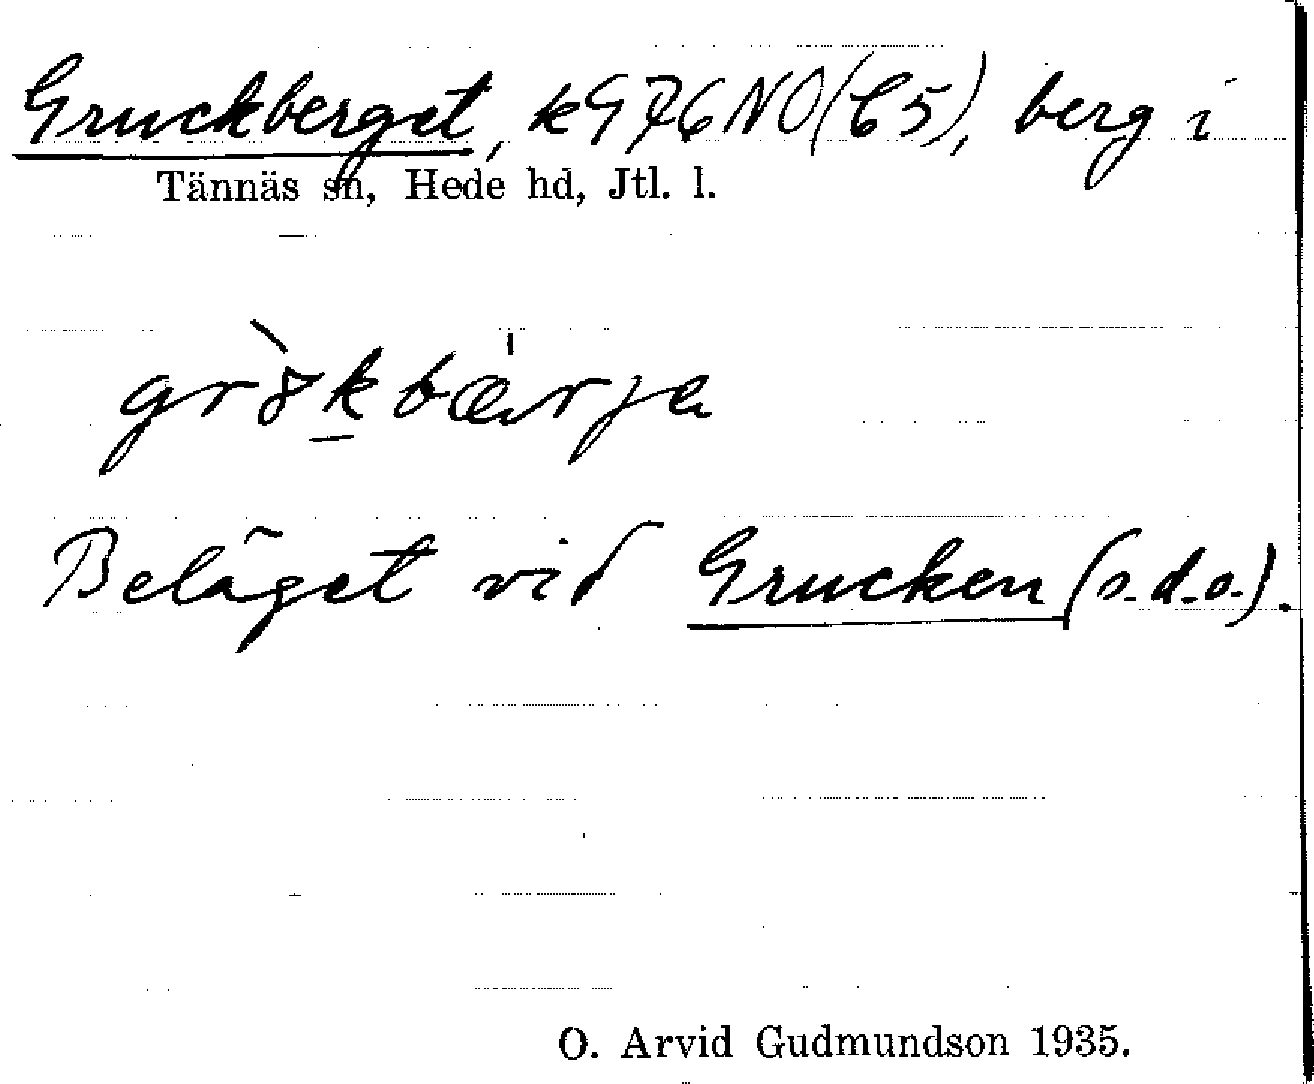 Gruckberget, kG 76 NO (C5), berg i
Tännäs sn, Hede hd, Jtl. l.
Beläget vid Grucken (s.d.o.).
O. Arvid Gudmundson 1935.